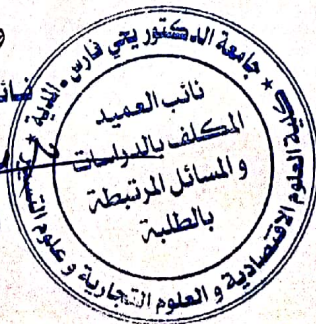 جامعة الدكتور يحي فارس - المدية
كلية العلوم الاقتصادية و العلوم التجارية و علوم التسيير
نائب العميد
المكلف بالدراسات
و المسائل المرتبطة
بالطلبة
نائب